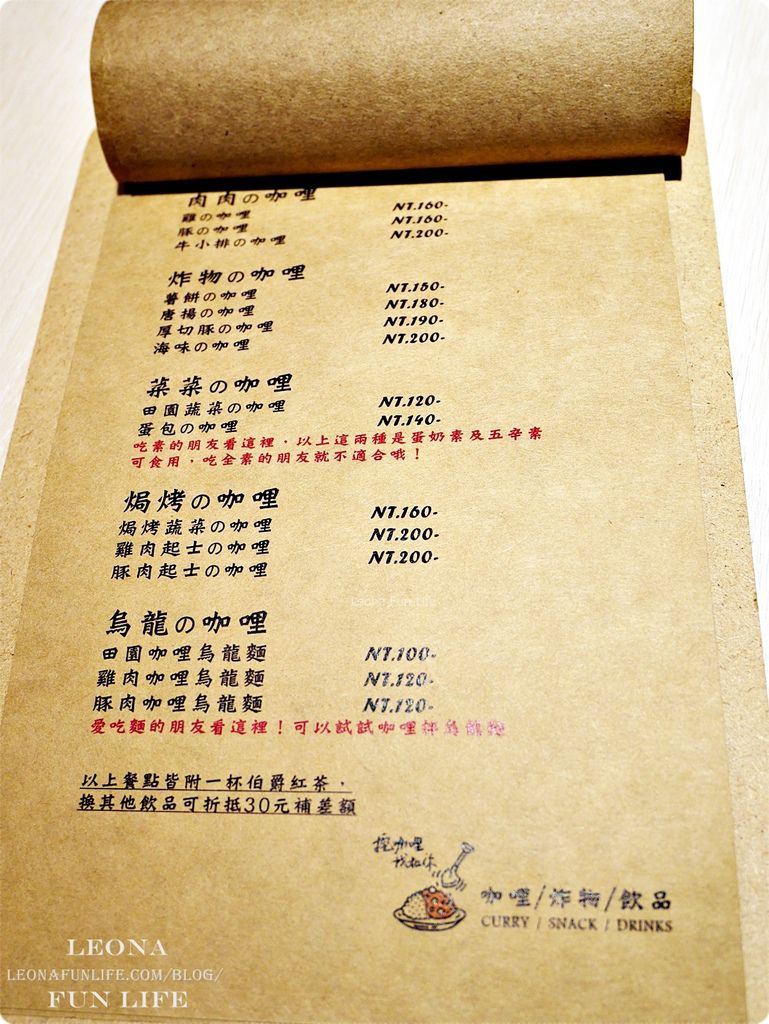 肉肉の咖哩
雞の咖哩 NT.160-
豚の咖哩 NT.160-
牛小排の咖哩 NT.200-
炸物の咖哩
薯餅の咖哩 NT.150-
唐揚の咖哩 NT.180-
厚切豚の咖哩 NT.190-
海味の咖哩 NT.200-
菜菜の咖哩
田園蔬菜の咖哩 NT.120-
蛋包の咖哩 NT.140-
吃素的朋友看這裡，以上這兩種是蛋奶素及五辛素
可食用，吃全素的朋友就不適合哦！
焗烤の咖哩
焗烤蔬菜の咖哩 NT.160-
雞肉起士の咖哩 NT.200-
豚肉起士の咖哩 NT.200-
烏龍の咖哩
田園咖哩烏龍麵 NT.100-
雞肉咖哩烏龍麵 NT.120-
豚肉咖哩烏龍麵 NT.120-
愛吃麵的朋友看這裡！可以試試咖哩拌烏龍麵
以上餐點皆附一杯伯爵紅茶，
換其他飲品可折抵30元補差額
挖咖哩
咖哩/炸物/飲品
CURRY / SNACK / DRINKS
Leona Fun Life
LEONA
LEONAFUNLIFE.COM/BLOG/
FUN LIFE